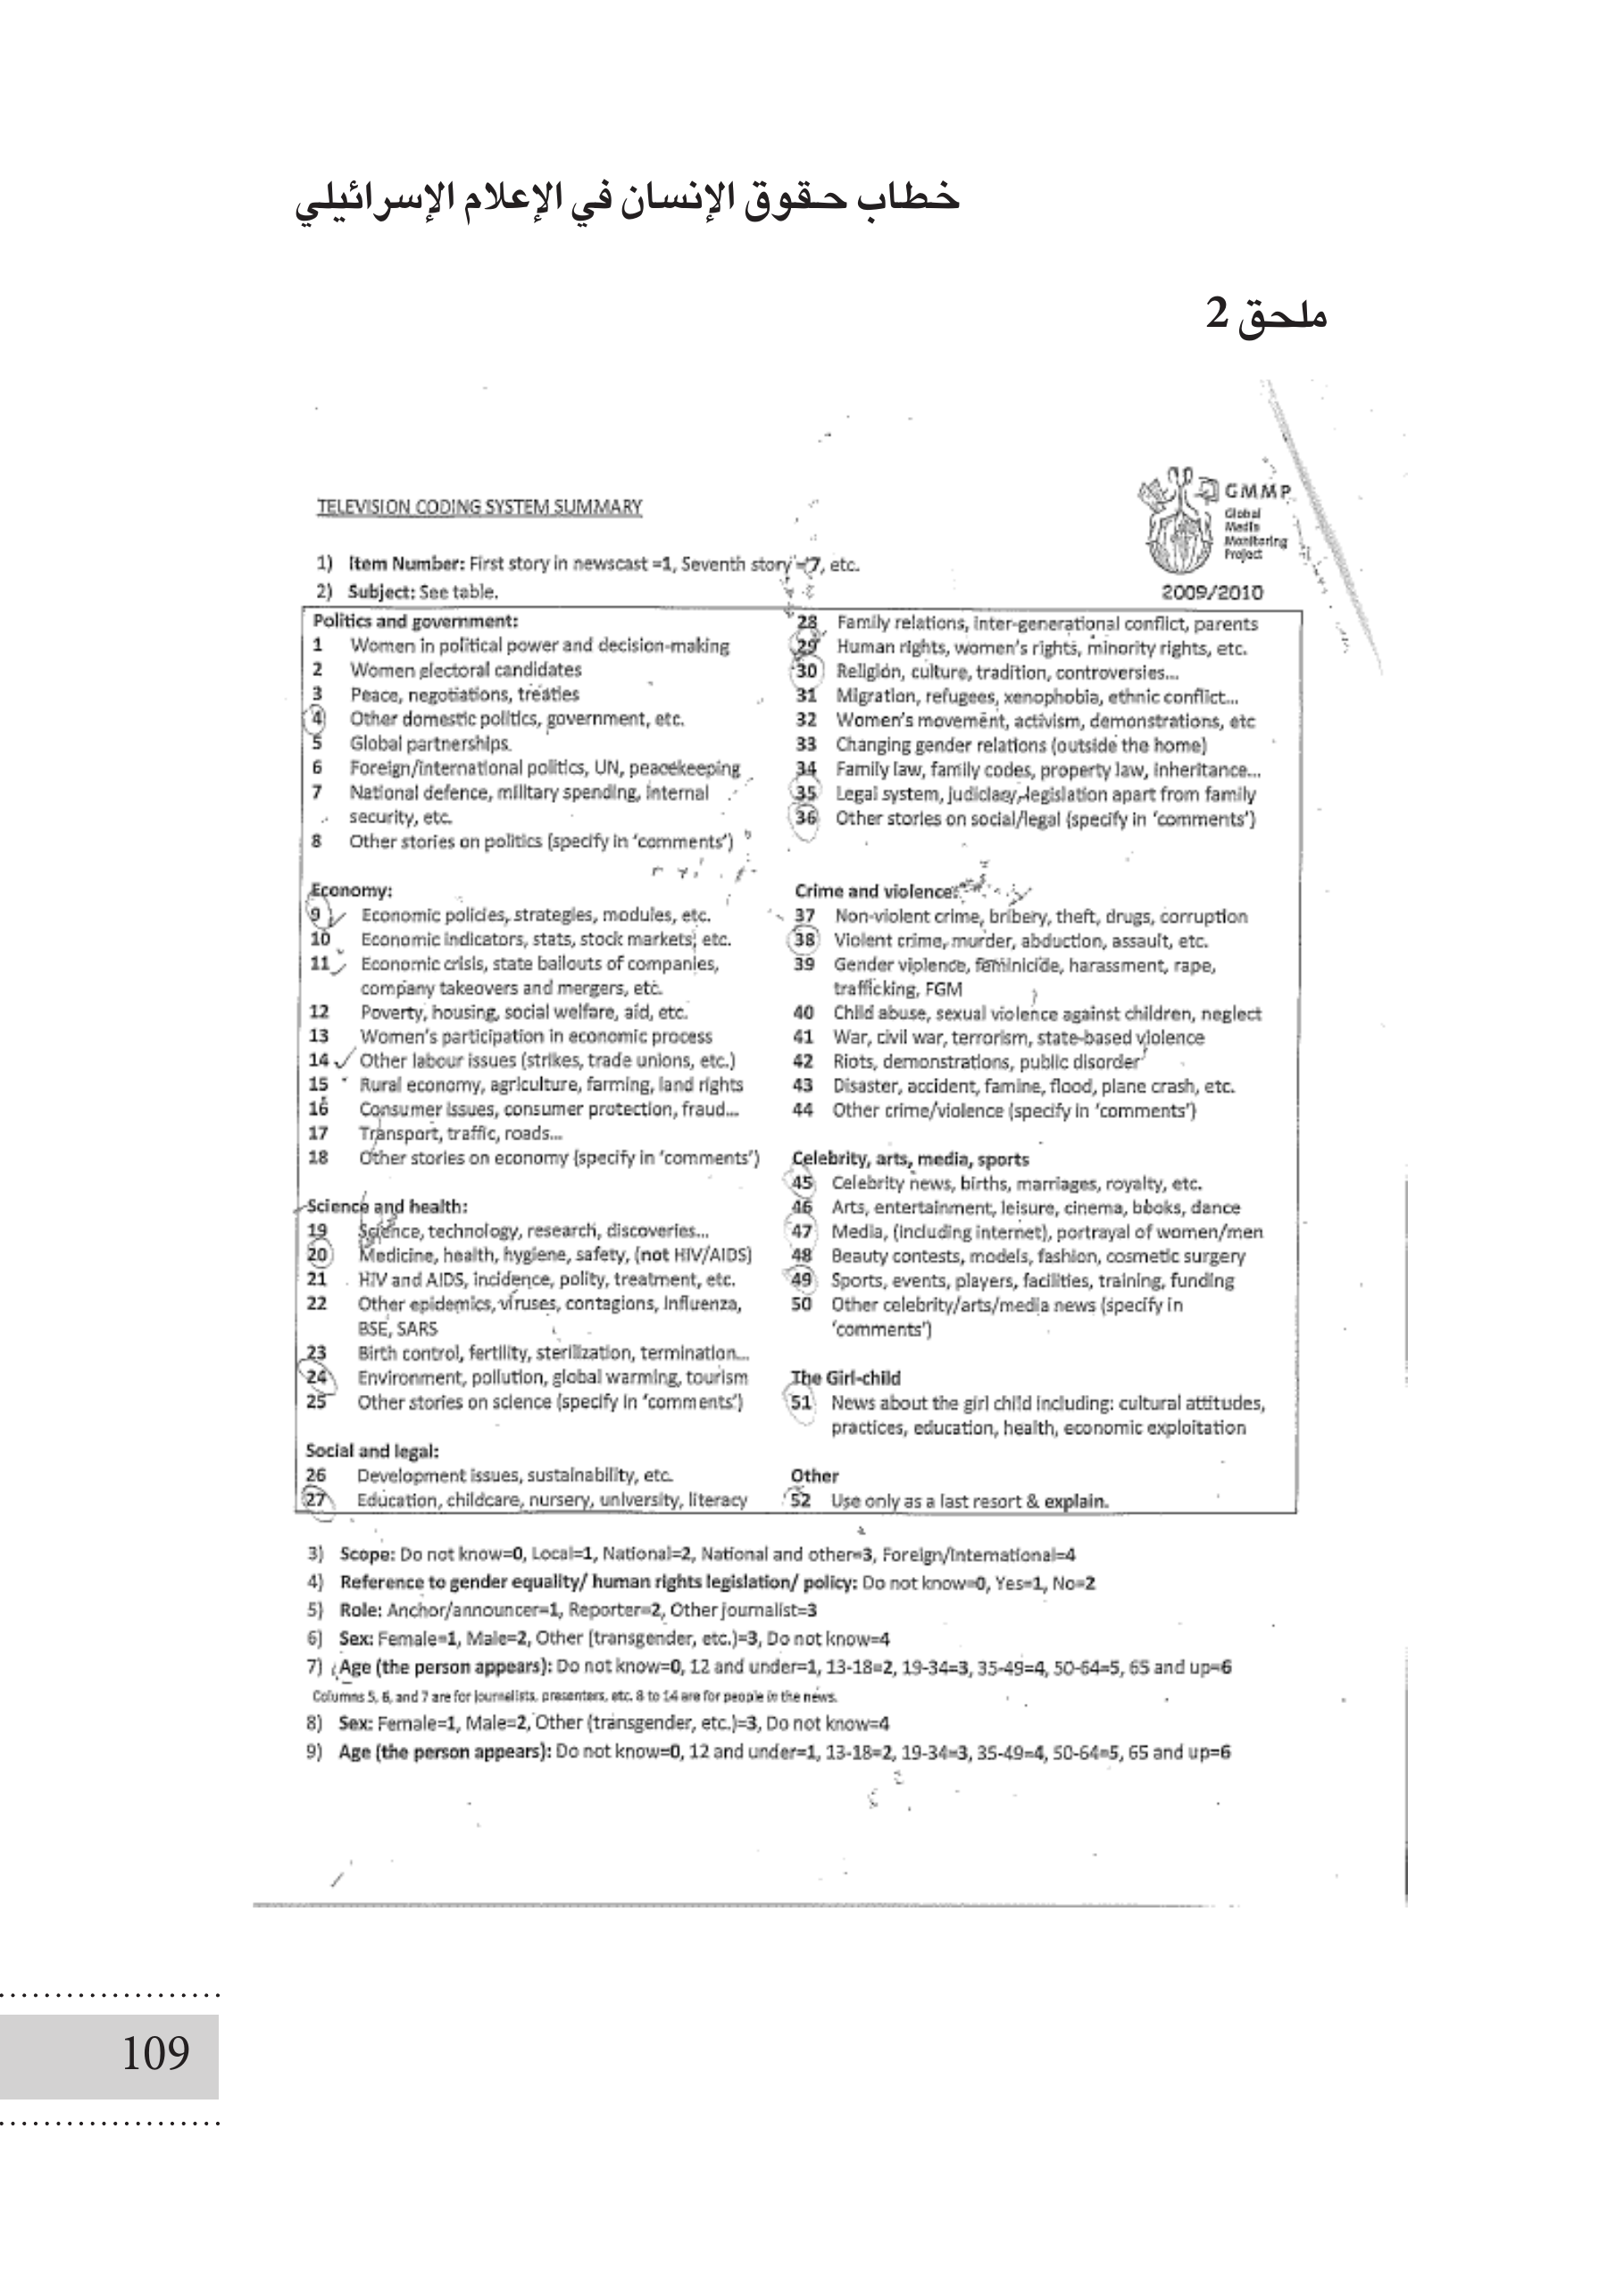 خطاب حقوق الإنسان في الإعلام الإسرائيلي
ملحق 2
TELEVISION CODING SYSTEM SUMMARY
GMMP
Global
Media
Monitoring
Project
2009/2010
1) Item Number: First story in newscast =1, Seventh story =7, etc.
2) Subject: See table.
Politics and government:
1 Women in political power and decision-making
2 Women electoral candidates
3 Peace, negotiations, treaties
4 Other domestic politics, government, etc.
5 Global partnerships.
6 Foreign/international politics, UN, peacekeeping
7 National defence, military spending, internal
security, etc.
8 Other stories on politics (specify in ‘comments’)
Economy:
9 Economic policies, strategies, modules, etc.
10 Economic indicators, stats, stock markets, etc.
11 Economic crisis, state bailouts of companies,
company takeovers and mergers, etc.
12 Poverty, housing, social welfare, aid, etc.
13 Women’s participation in economic process
14 Other labour issues (strikes, trade unions, etc.)
15 Rural economy, agriculture, farming, land rights
16 Consumer issues, consumer protection, fraud...
17 Transport, traffic, roads...
18 Other stories on economy (specify in ‘comments’)
Science and health:
19 Science, technology, research, discoveries...
20 Medicine, health, hygiene, safety, (not HIV/AIDS)
21 HIV and AIDS, incidence, polity, treatment, etc.
22 Other epidemics, viruses, contagions, Influenza,
BSE, SARS
23 Birth control, fertility, sterilization, termination...
24 Environment, pollution, global warming, tourism
25 Other stories on science (specify in ‘comments’)
Social and legal:
26 Development issues, sustainability, etc.
27 Education, childcare, nursery, university, literacy
28 Family relations, inter-generational conflict, parents
29 Human rights, women’s rights, minority rights, etc.
30 Religion, culture, tradition, controversies...
31 Migration, refugees, xenophobia, ethnic conflict...
32 Women’s movement, activism, demonstrations, etc
33 Changing gender relations (outside the home)
34 Family law, family codes, property law, inheritance...
35 Legal system, judiciary, legislation apart from family
36 Other stories on social/legal (specify in ‘comments’)
Crime and violence:
37 Non-violent crime, bribery, theft, drugs, corruption
38 Violent crime, murder, abduction, assault, etc.
39 Gender violence, feminicide, harassment, rape,
trafficking, FGM
40 Child abuse, sexual violence against children, neglect
41 War, civil war, terrorism, state-based violence
42 Riots, demonstrations, public disorder
43 Disaster, accident, famine, flood, plane crash, etc.
44 Other crime/violence (specify in ‘comments’)
Celebrity, arts, media, sports
45 Celebrity news, births, marriages, royalty, etc.
46 Arts, entertainment, leisure, cinema, books, dance
47 Media, (including internet), portrayal of women/men
48 Beauty contests, models, fashion, cosmetic surgery
49 Sports, events, players, facilities, training, funding
50 Other celebrity/arts/media news (specify in
‘comments’)
The Girl-child
51 News about the girl child including: cultural attitudes,
practices, education, health, economic exploitation
Other
52 Use only as a last resort & explain.
3) Scope: Do not know=0, Local=1, National=2, National and other=3, Foreign/International=4
4) Reference to gender equality/ human rights legislation/ policy: Do not know=0, Yes=1, No=2
5) Role: Anchor/announcer=1, Reporter=2, Other journalist=3
6) Sex: Female=1, Male=2, Other (transgender, etc.)=3, Do not know=4
7) Age (the person appears): Do not know=0, 12 and under=1, 13-18=2, 19-34=3, 35-49=4, 50-64=5, 65 and up=6
Columns 5, 6, and 7 are for journalists, presenters, etc. 8 to 14 are for people in the news.
8) Sex: Female=1, Male=2, Other (transgender, etc.)=3, Do not know=4
9) Age (the person appears): Do not know=0, 12 and under=1, 13-18=2, 19-34=3, 35-49=4, 50-64=5, 65 and up=6
109